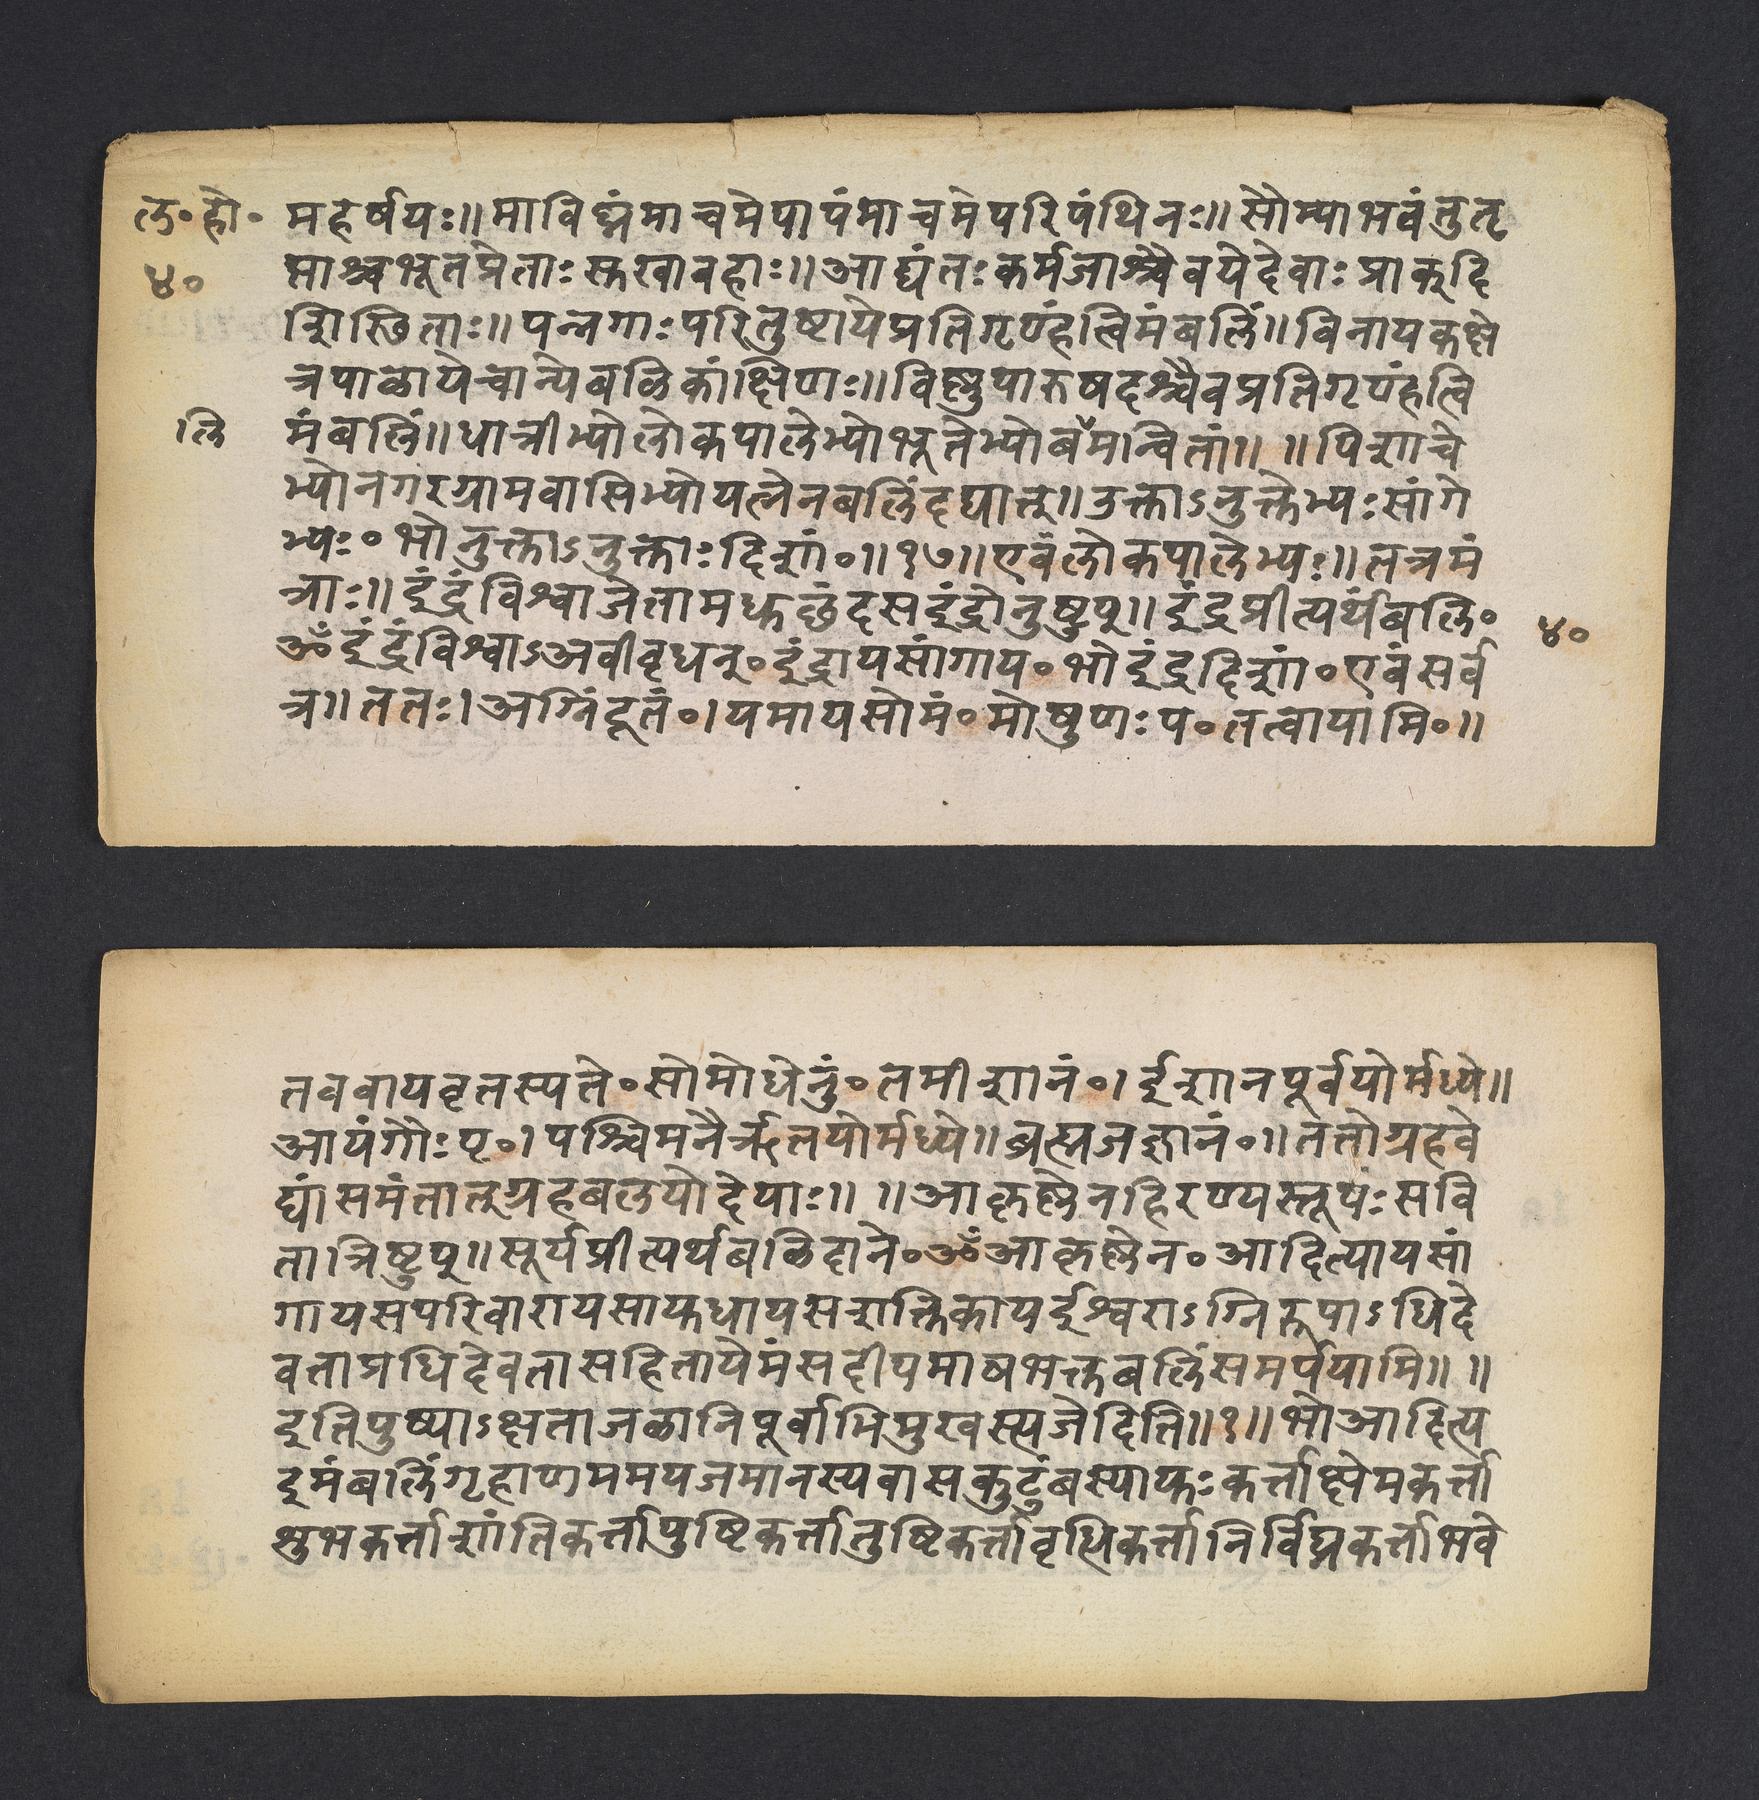 ल॰हो॰ महर्षयः॥माविघ्नंमाचमेपापंमाचमेपरिपंथिनः॥सौम्याभवंतुतृ
४०
प्ताश्चभूतप्रेताःसुखावहाः॥आद्यंतःकर्मजाश्चैवयेदेवाःप्राक्दि
शिस्थिताः॥पन्नगाःपरितुष्टायेप्रतिगृण्हंत्विमंबलिं॥विनायकक्षे
त्रपाळायेचान्येबळिकांक्षिणः॥विष्णुपारुषदश्चैवप्रतिगृण्हंत्वि
।लि मंबलिं॥धात्रीभ्योलोकपालेभ्योभूतेभ्योबमान्वितां॥ ॥पिशाचे
भ्योनगरग्रामवासिभ्योयत्नेनबलिंदद्यात्॥उक्ताऽनुक्तेभ्यःसांगे
भ्यः॰भोनुक्ताऽनुक्ताःदिशां॰॥१७॥एवंलोकपालेभ्यः॥तत्रमं
त्राः॥इंद्रंविश्वाजेतामधुछंदसइंद्रोनुष्टुप्॥इंद्रप्रीत्यर्थंबलि॰
४०
ॐइंद्रंविश्वाऽअवीवृधन्॰इंद्रायसांगाय॰भोइंद्रदिशां॰एवंसर्व
त्र॥ततः।अग्निंदूतं॰।यमायसोमं॰मोषुणःप॰तत्वायामि॰॥
तववायवृतस्पते॰सोमोधेनुं॰तमीशानं॰।ईशानपूर्वयोर्मध्ये॥
आयंगौःपृ॰।पश्चिमनैर्ऋतयोर्मध्ये॥ब्रह्मजज्ञानं॰॥ततोग्रहवे
द्यांसमंतात्ग्रहबलयोदेयाः॥ ॥आकृष्णेनहिरण्यस्तूपंःसवि
तात्रिष्टुप्॥सूर्यप्रीत्यर्थंबळिदाने॰ॐआकृष्णेन॰आदित्यायसां
गायसपरिवारायसायुधायसशक्तिकायईश्वराऽग्निरूपाऽधिदे
वताप्रधिदेवतासहितायेमंसदीपमाषभक्तबलिंसमर्पयामि॥ ॥
इतिपुष्पाऽक्षताजळानिपूर्वाभिमुखस्त्यजेदिति॥१॥भोआदित्य
इमंबलिंगृहाणममयजमानस्यवासकुटुंबस्यायुःकर्त्ताक्षेमकर्त्ता
शुभकर्त्ताशांतिकर्त्तापुष्टिकर्त्तातुष्टिकर्त्तावृद्धिकर्त्तानिर्विघ्नकर्त्ताभवे